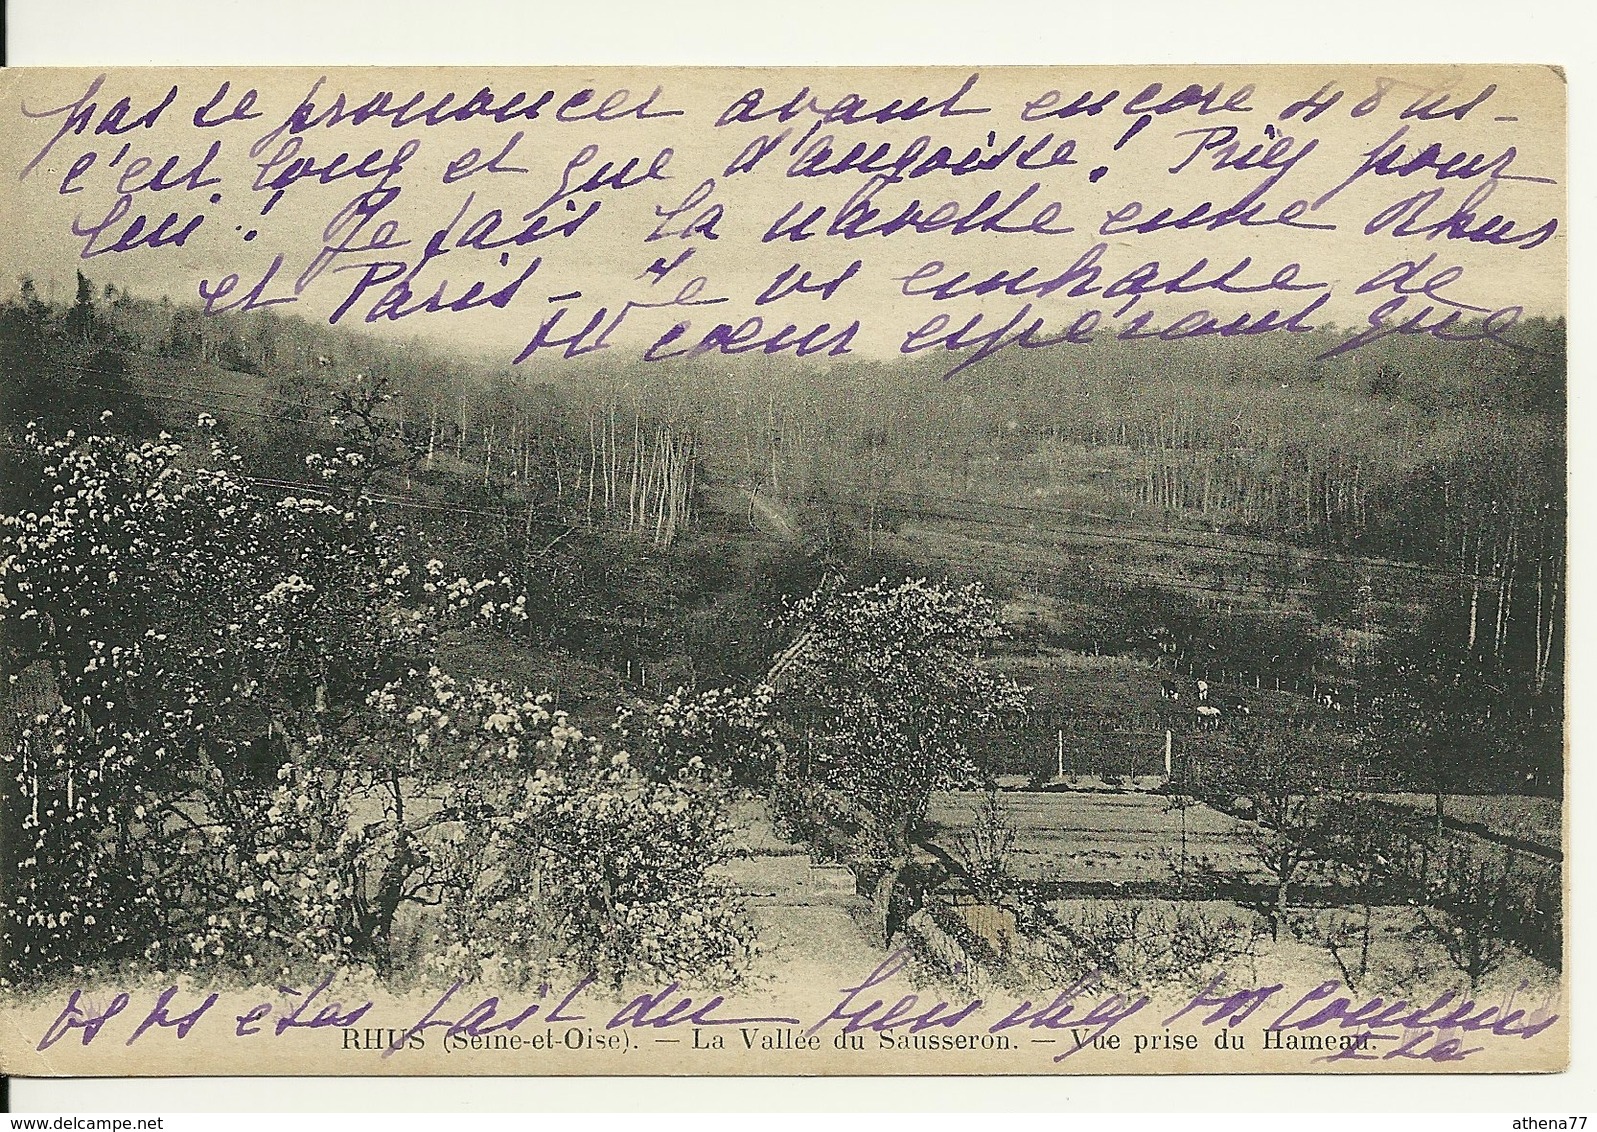 pas se prononcer avant encore 48 hs -
c'est long et que d'angoisse ! Priez pour
lui ! Je fais la navette entre Rhus
et Paris - Je vs embrasse de
tt cœur espérant que
vs vs êtes fait du bien chez vos cousins
RHUS (Seine-et-Oise). — La Vallée du Sausseron. — Vue prise du Hameau.
athena77